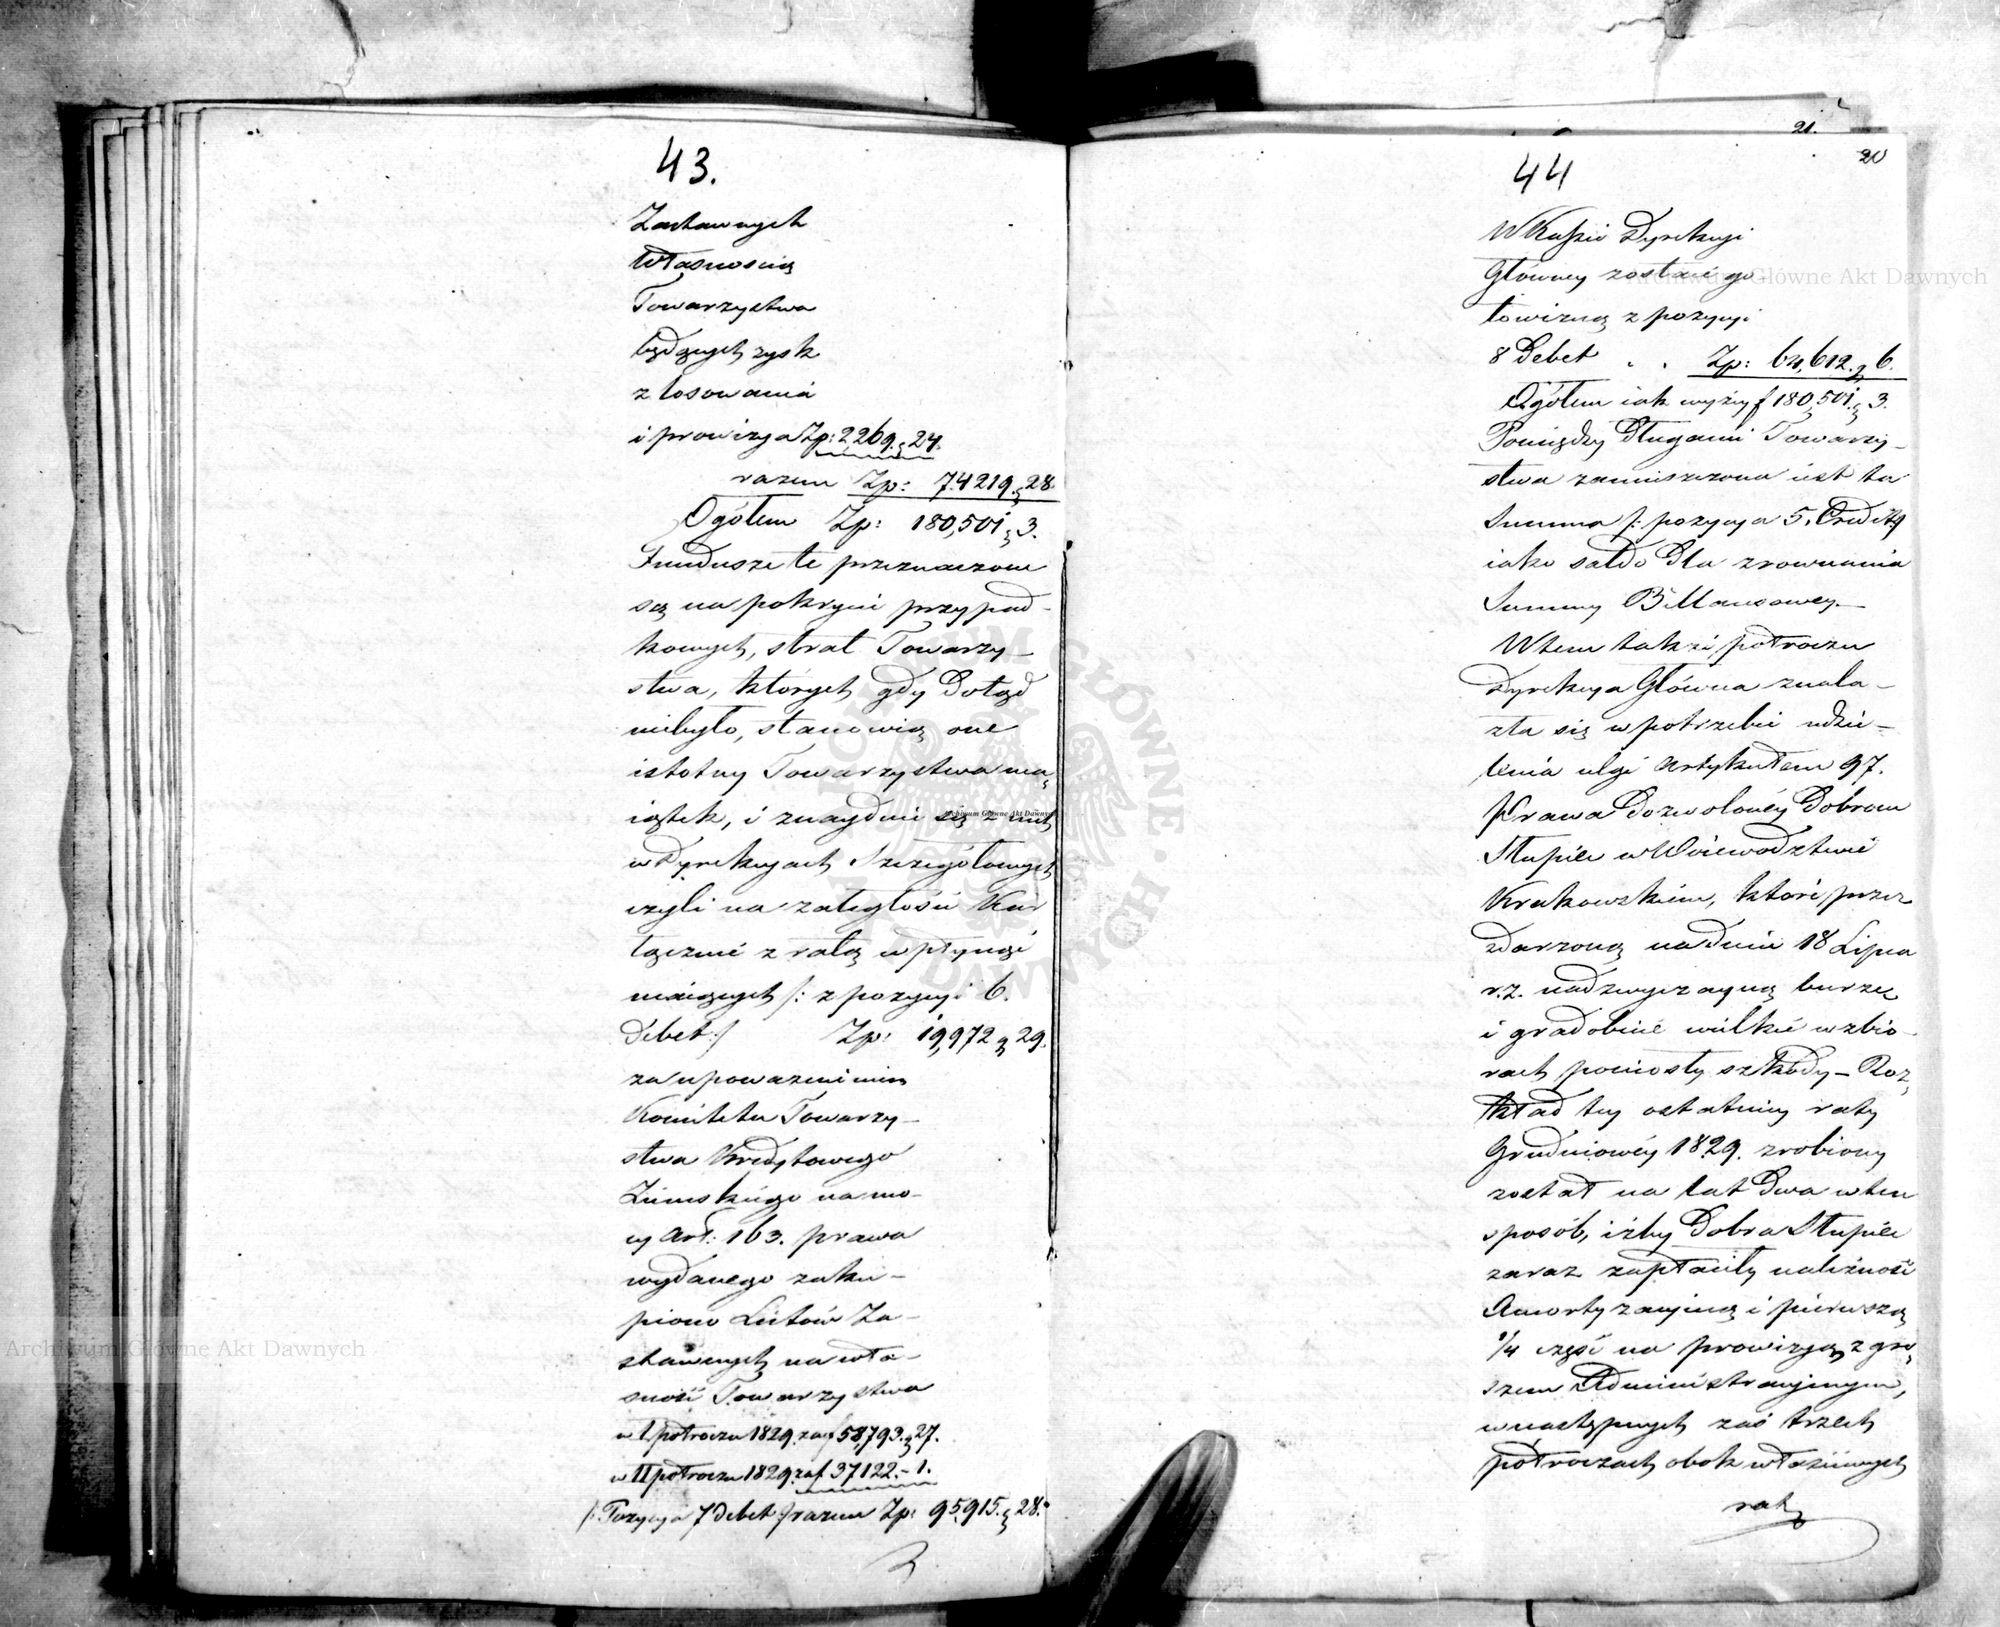 43.
Zastawnych
własnością
Towarzystwa
będących zysk
z losowania
i prowizya Zp: 2269. g 24.
razem Zp: 74219. g 28.
Ogółem Zp: 180,501. g 3.
Fundusze te przeznaczone
są na pokrycie przypad-
kowych, strat Towarzy-
stwa, których gdy dotąd
niebyło, stanowią one
istotny Towarzystwa ma-
iątek, i znayduie się z nich
w Dyrekcyach Szczegółowych
czyli na zaległości
łącznie z ratą wpłynąć
maiących /: z pozycyi 6.
Debet :/ Zp: 19,972 g 29.
za upoważnieniem
Komitetu Towarzy-
stwa Kredytowego
Ziemskiego na mo-
cy Art: 163. prawa
wydanego zaku-
piono Listów Za-
stawnych na wła-
sność Towarzystwa
w I półroczu 1829. za f 58,793. g 27.
w II półroczu 1829. za f. 37122. - 1.
/: Pozycya 7 debet :/ razem Zp: 95,915. g 28.
21.
20
44
W Kassie Dyrekcyi
Główney zostaie go-
towizną z pozycyi
8 Debet . . Zp: 64,612. g 6.
Ogółem iak wyżey f 180,501. g 3.
Pomiędzy Długami Towarzy-
stwa zamieszczona iest ta
Summa /: pozycya 5. Credit :/
iako saldo dla zrownania
Summy Billansowey.—
W tem także półroczu
Dyrekcya Główna znala-
zła się w potrzebie udzie-
lenia ulgi Artykułem 97.
Prawa dozwoloney Dobrom
Słupiec w Woiewodztwie
Krakowskiem, które przez
zdarzoną na dniu 18 Lipca
r. z. nadzwyczayną burzę
i gradobicie wielkie w zbio-
rach poniosły szkody – Roz-
kład tey ostatniey raty
Grudniowéy 1829. zrobiony
został na lat dwa w ten
sposób, iżby Dobra Słupiec
zaraz zapłaciły należność
Amortyzacyiną i pierwszą
1/4 część na prowizyą z gro-
szem Administracyinym,
w następnych zaś trzech
półroczach obok właściwych
rat
Archiwum Główne Akt Dawnych
Archiwum Główne Akt Dawnych
Archiwum Główne Akt Dawnych
ARCHIWUM GŁÓWNE AKT DAWNYCH